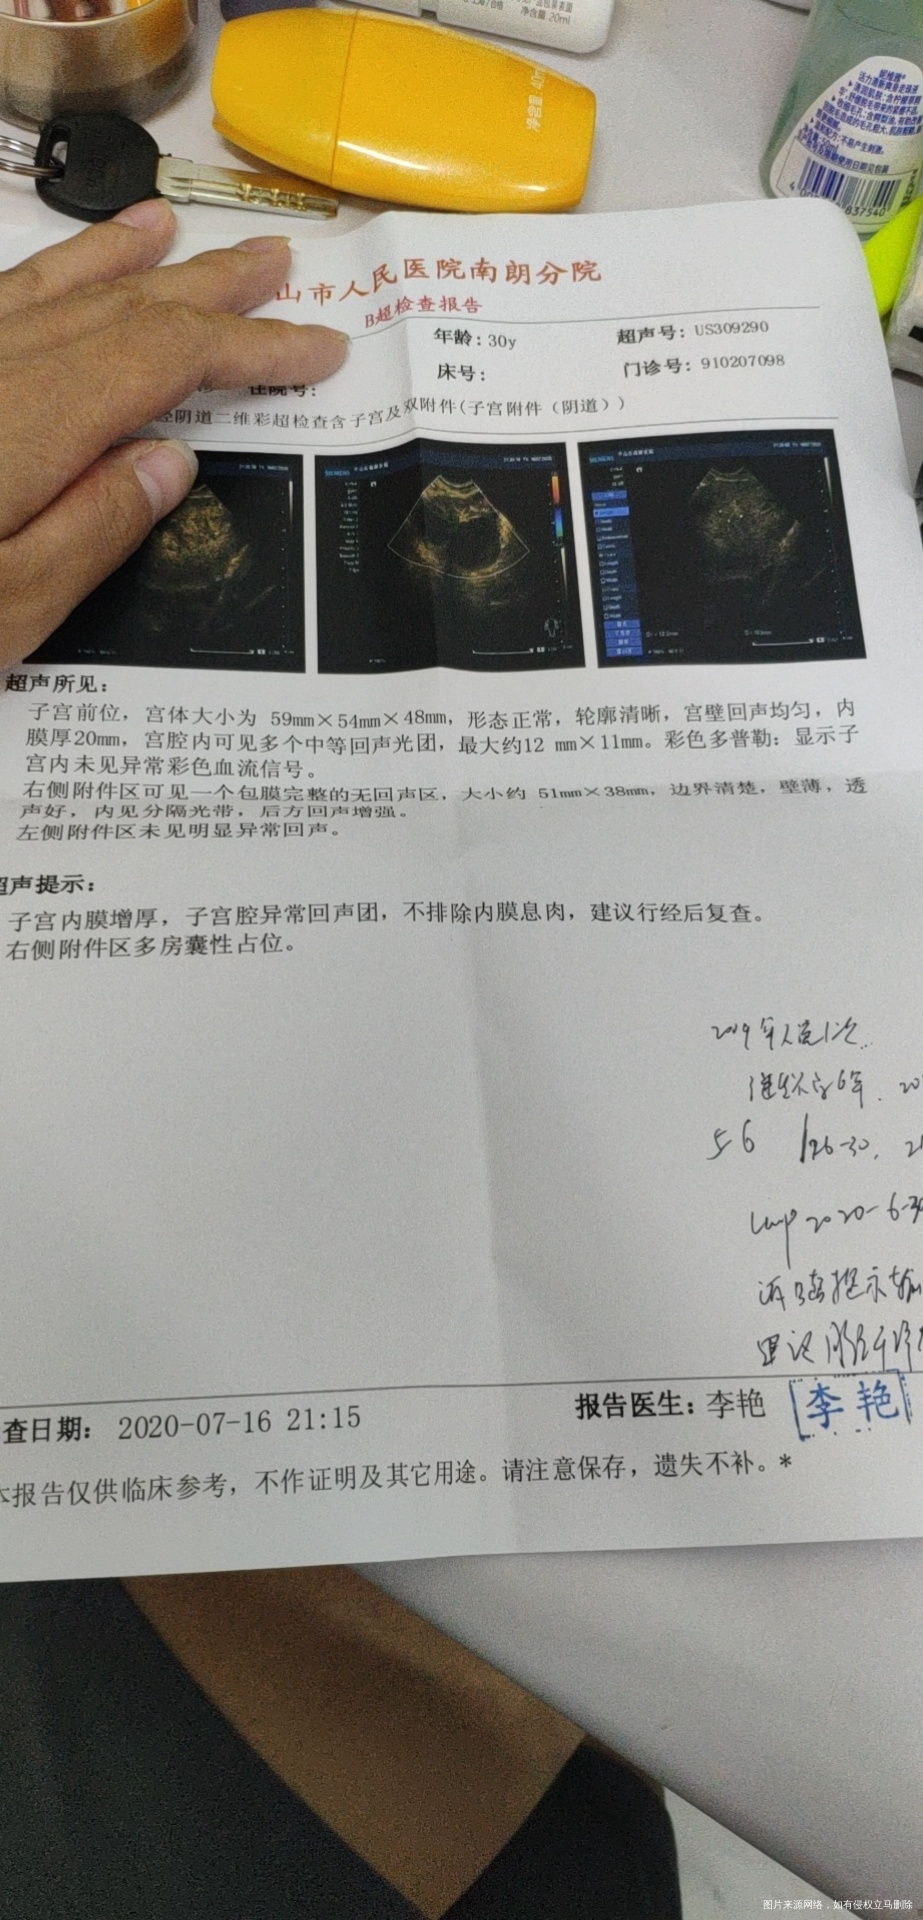 净含量 20ml
净含量 40m
妮维雅
山市人民医院南朗分院
B超检查报告
年龄：30y
超声号：US309290
住院号：
床号：
门诊号：910207098
经阴道二维彩超检查含子宫及双附件(子宫附件（阴道）)
超声所见：
子宫前位，宫体大小为 59mm×54mm×48mm，形态正常，轮廓清晰，宫壁回声均匀，内
膜厚20mm，宫腔内可见多个中等回声光团，最大约12 mm×11mm。彩色多普勒：显示子
宫内未见异常彩色血流信号。
右侧附件区可见一个包膜完整的无回声区，大小约 51mm×38mm，边界清楚，壁薄，透
声好，内见分隔光带，后方回声增强。
左侧附件区未见明显异常回声。
超声提示：
子宫内膜增厚，子宫腔异常回声团，不排除内膜息肉，建议行经后复查。
右侧附件区多房囊性占位。
2019年人流1次
继发不孕6年.
56 /26-30.
Lmp 2020-6-30
查日期： 2020-07-16 21:15
报告医生：李艳
李艳
本报告仅供临床参考，不作证明及其它用途。请注意保存，遗失不补。*
图片来源网络，如有侵权立马删除